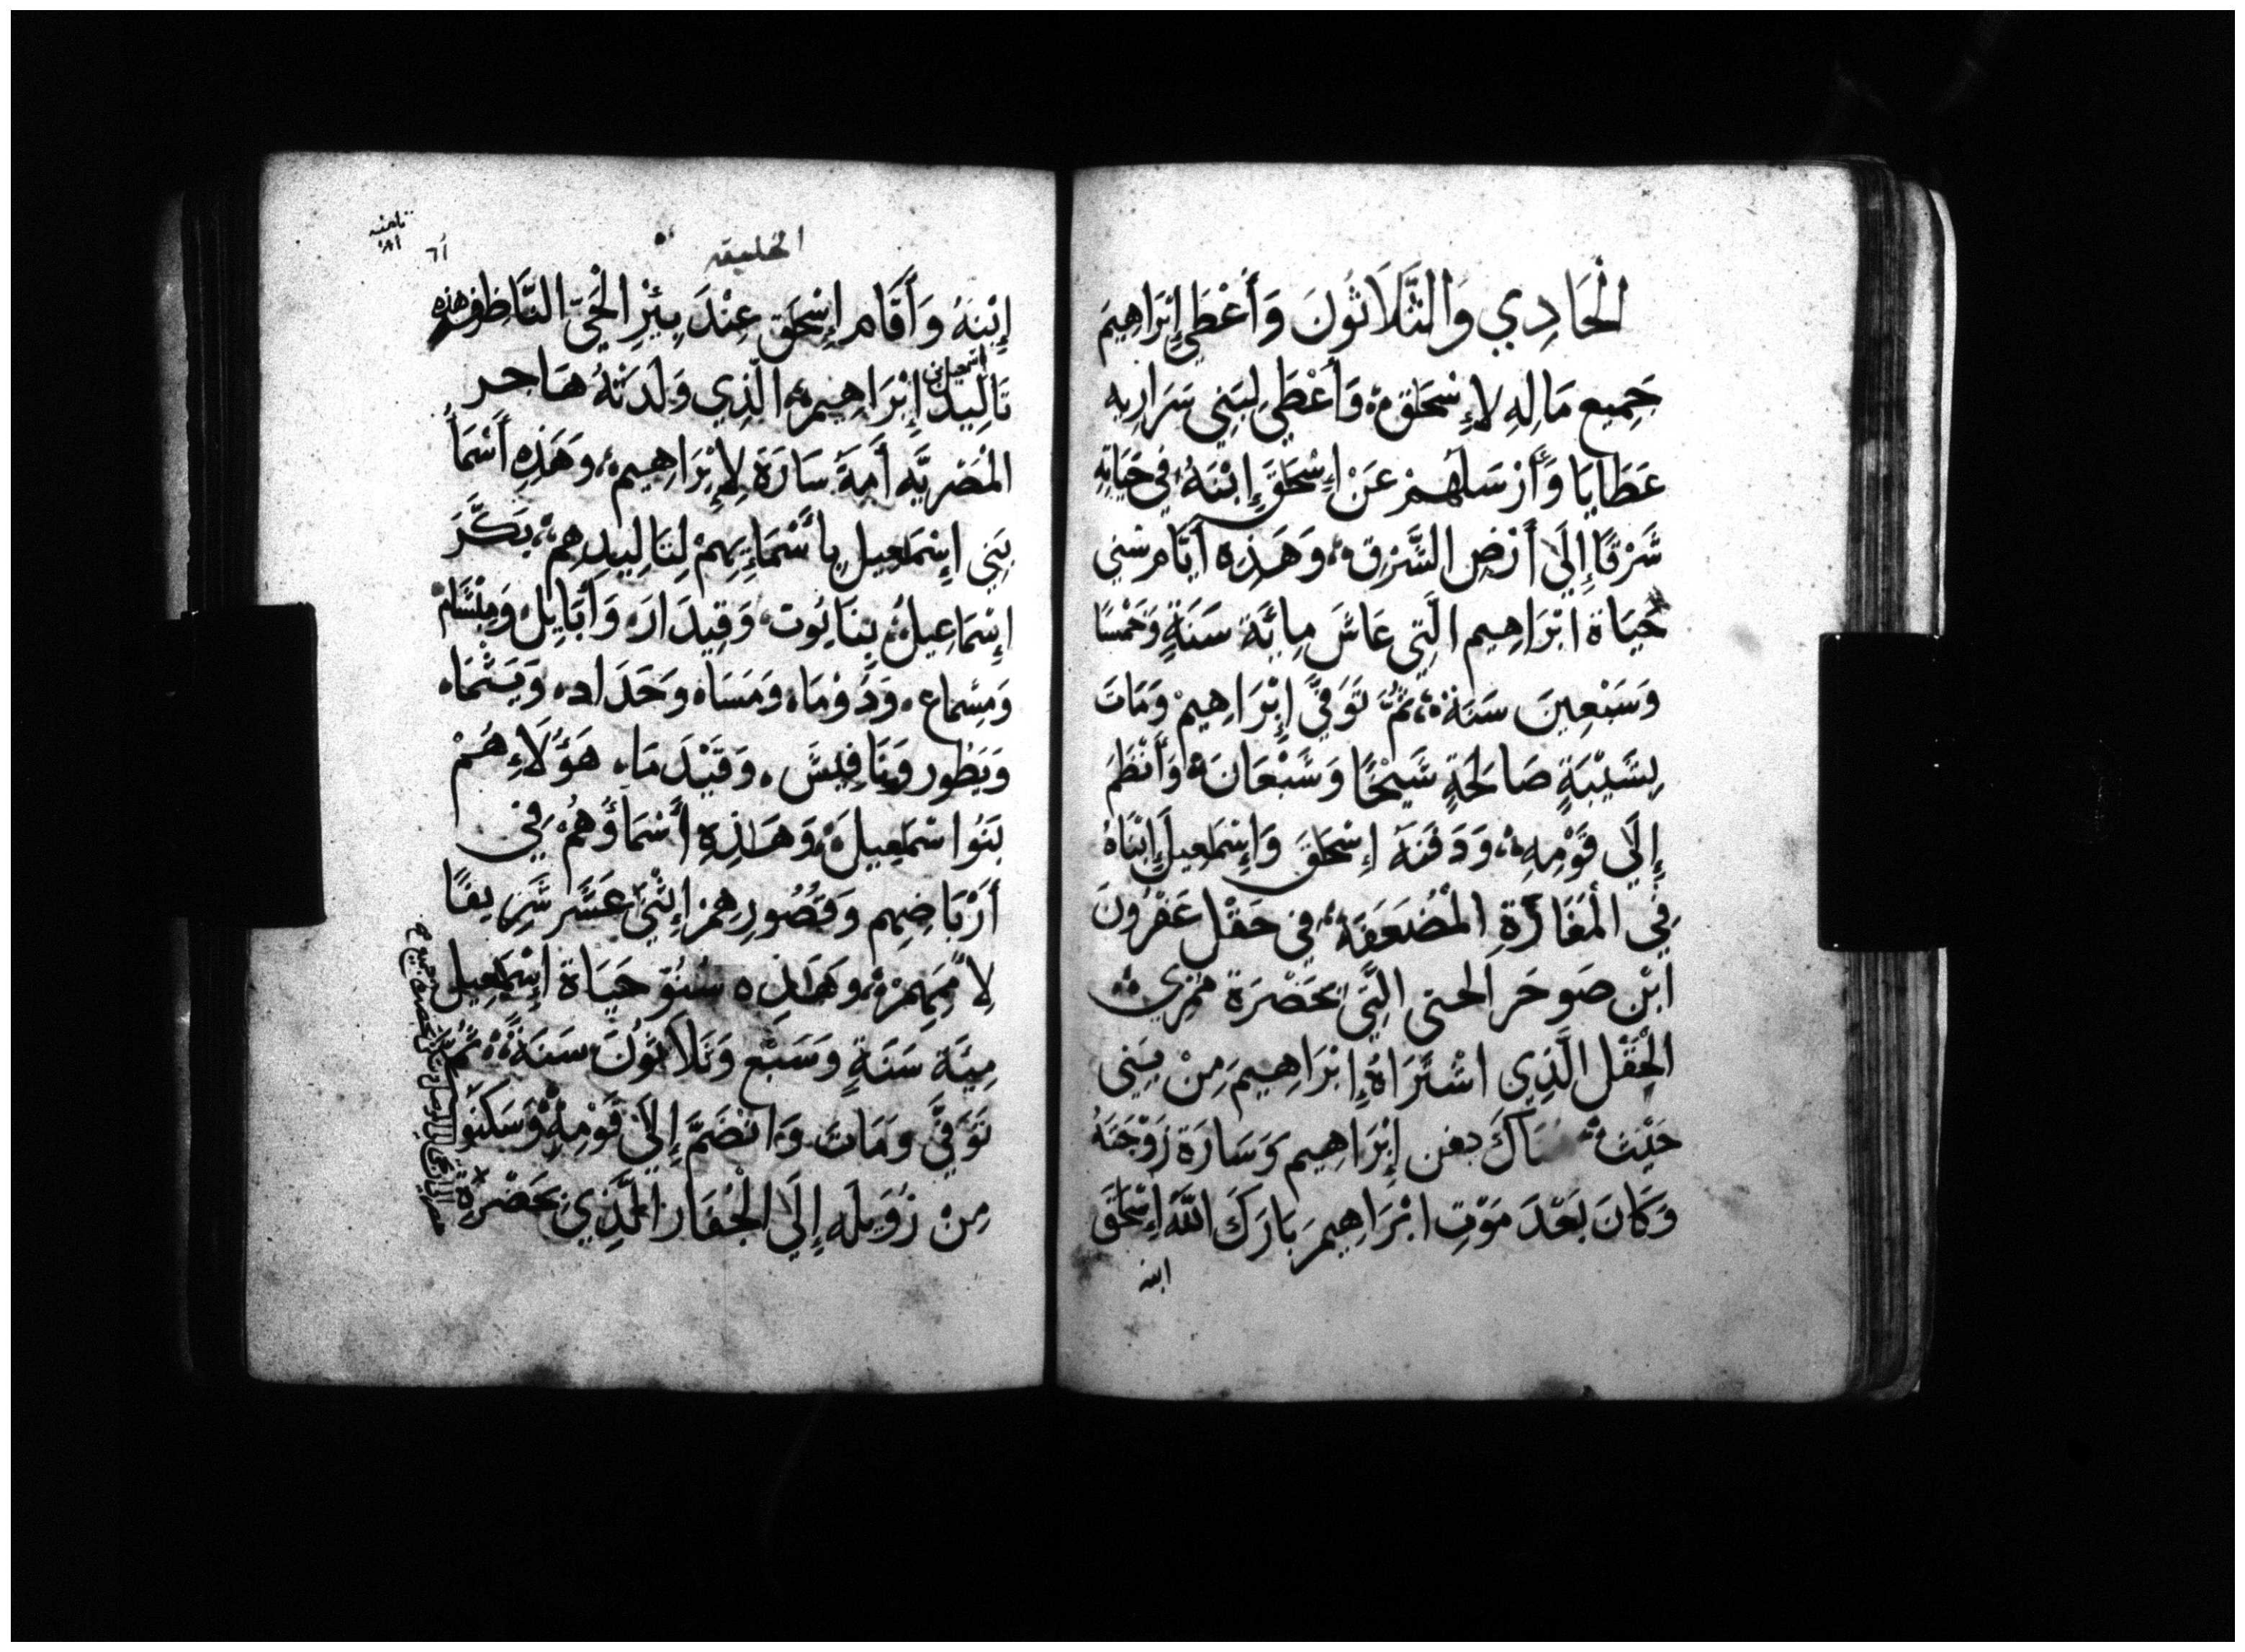 الْحَادِي وَالثَّلَاثُونَ وَأَعْطَي إِبْرَاهِيمَ
جَمِيع مَا لِهِ لإِسْحَقَ وَأَعْطَي لِبَنِي سَرَارِيه
عَطَايَا وَأَرْسَلَهُمْ عَنْ إِسْحَقَ إِبْنَهُ فِي حَيَاتِهِ
شَرْقًا إِلَيَ أَرْضِ الشَّرْقِ وَهَذِهِ أَيَّام سِنِي
حَيَاة ابْرَاهِيم الَّتِي عَاشَ مِائَة سَنَةٍ وَخَمْسًا
وَسَبْعِينَ سَنَة ثُمَّ تَوَفَّيَ إِبْرَاهِيمْ وَمَاتَ
بِشَيْبَةٍ صَالِحَةٍ شَيْخًا وَشَبْعَانَ وَأَنْظَمَ
إِلَي قَوْمِهِ وَدَفَنَهُ إِسْحَقَ وَإِسْمَعِيل إِبْنَاهُ
فِي الْمَغَارَةِ الْمُضَعَفَة فِي حَقْل عَفْرُونَ
ابْن صَوحَر الحتى الَّتِي بَحَضْرَة مَمْرِي
الْحَقْل الَّذِي اشْتَرَاهُ إِبْرَاهِيمَ مِنْ بَنِي
حَيْثَ دفن إِبْرَاهِيم وَسَارَة زَوْجَتَهُ
وَكَانَ بَعْدَ مَوْتِ ابْرَاهِيمَ بَارَكَ اللَّهُ إِسْحَقَ
ابنه
الخليقه
ثامنه
٦١
إِبْنِهُ وَأَقَام إِسْحَق عِنْدَ بِئْرِ الْحَيّ النَّاظِر هذه
تَالِيد اسمعيل بن إِبْرَاهِيم الَّذِي وَلَدَتْهُ هَاجر
الْمُصْرِيَّه أَمَةُ سَارَة لإِبْرَاهِيم وَهَذِهِ أَسْمَأُ
بَنِي إِسْمَعِيل بِأَسْمَإِيهِمْ لِتَالِيدِهِم بَكَّرَ
إِسْمَاعِيل نِبَايُوت وَقِيدَار وَأَبَايِل وَمِبْسَام
وَمِسْمَاع وَدَوْمَا وَمَسَا وَحَدَاد وَيَسْمَا
وَيَطُور وَنَافِيسَ وَقَيْدَمَا هَؤُلَاءِ هُمْ
بَنُوا سْمَعِيلَ وَهَاذِهِ أَسْمَاؤُهُمْ فِي
أَرْبَاضِهِم وَقُصُورِهِمْ إِثْنَيْ عَشَر شَرِيفًا
لأُمَمِهِمْ وَهَاذِه سُنُو حَيَاة إِسْمَعِيل
مِيَة سَنَةٍ وَسَبْع وَثَلَاثُونَ سَنَة ثُمَّ
تَوَفَّيَ وَمَاتَ وَانْضَمَّ إِلَيَ قَوْمِهِ وَسَكَنُوا
مِنْ زُوَيلَه إِلَيَ الْجِفَار الَّذِي بَحَضْرَة